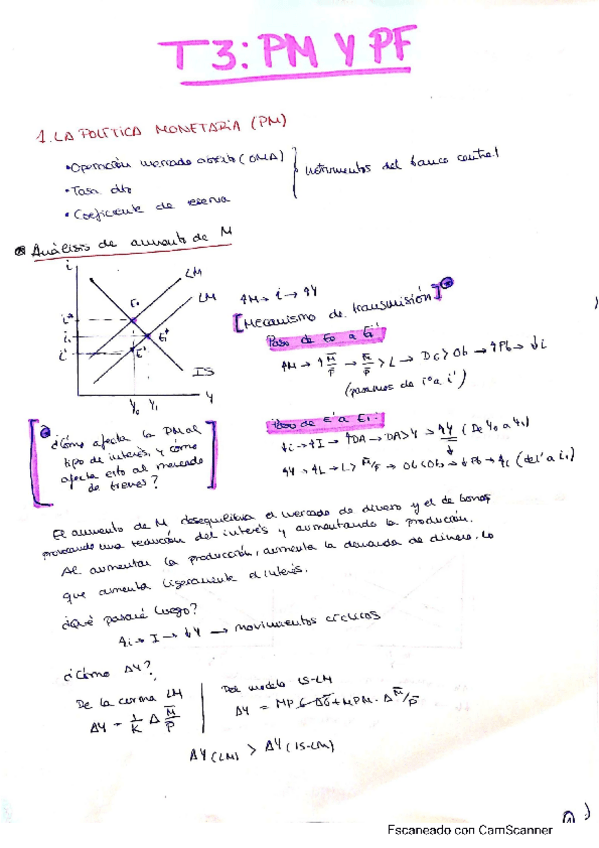 T3: PM Y PF
1. LA POLÍTICA MONETARIA (PM)
• Operación mercado abierto (OMA)
• Tasa dto
• Coeficiente de reserva
Instrumentos del banco central
Análisis de aumento de M
i
LM
LM
E₀
E₁
E'
i₁
i'
IS
Y
Y₀ Y₁
[Mecanismo de transmisión]
Paso de E₀ a E'
(pasamos de i⁰ a i')
Paso de E' a E₁:
¿Cómo afecta la PM al
tipo de interés, y cómo
afecta esto al mercado
de bienes?
El aumento de M desequilibra el mercado de dinero y el de bonos,
provocando una reducción del interés y aumentando la producción.
Al aumentar la producción, aumenta la demanda de dinero, lo
que aumenta ligeramente el interés.
¿Qué pasará luego?
↑i → I → ↓Y → movimientos cíclicos
¿Cómo ΔY?
De la curva LM
ΔY = 1/K Δ M̄/P̄
Del modelo IS-LM
ΔY (LM) > ΔY (IS-LM)
Escaneado con CamScanner